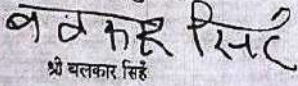 बलकार सिंह
श्री बलकार सिहं